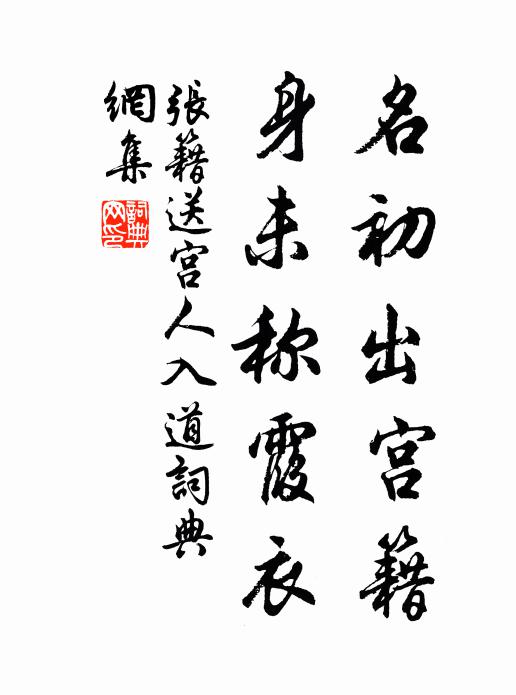 名初出宫籍
身未称霞衣
張籍送宫人入道詞典
網集
詞典網印